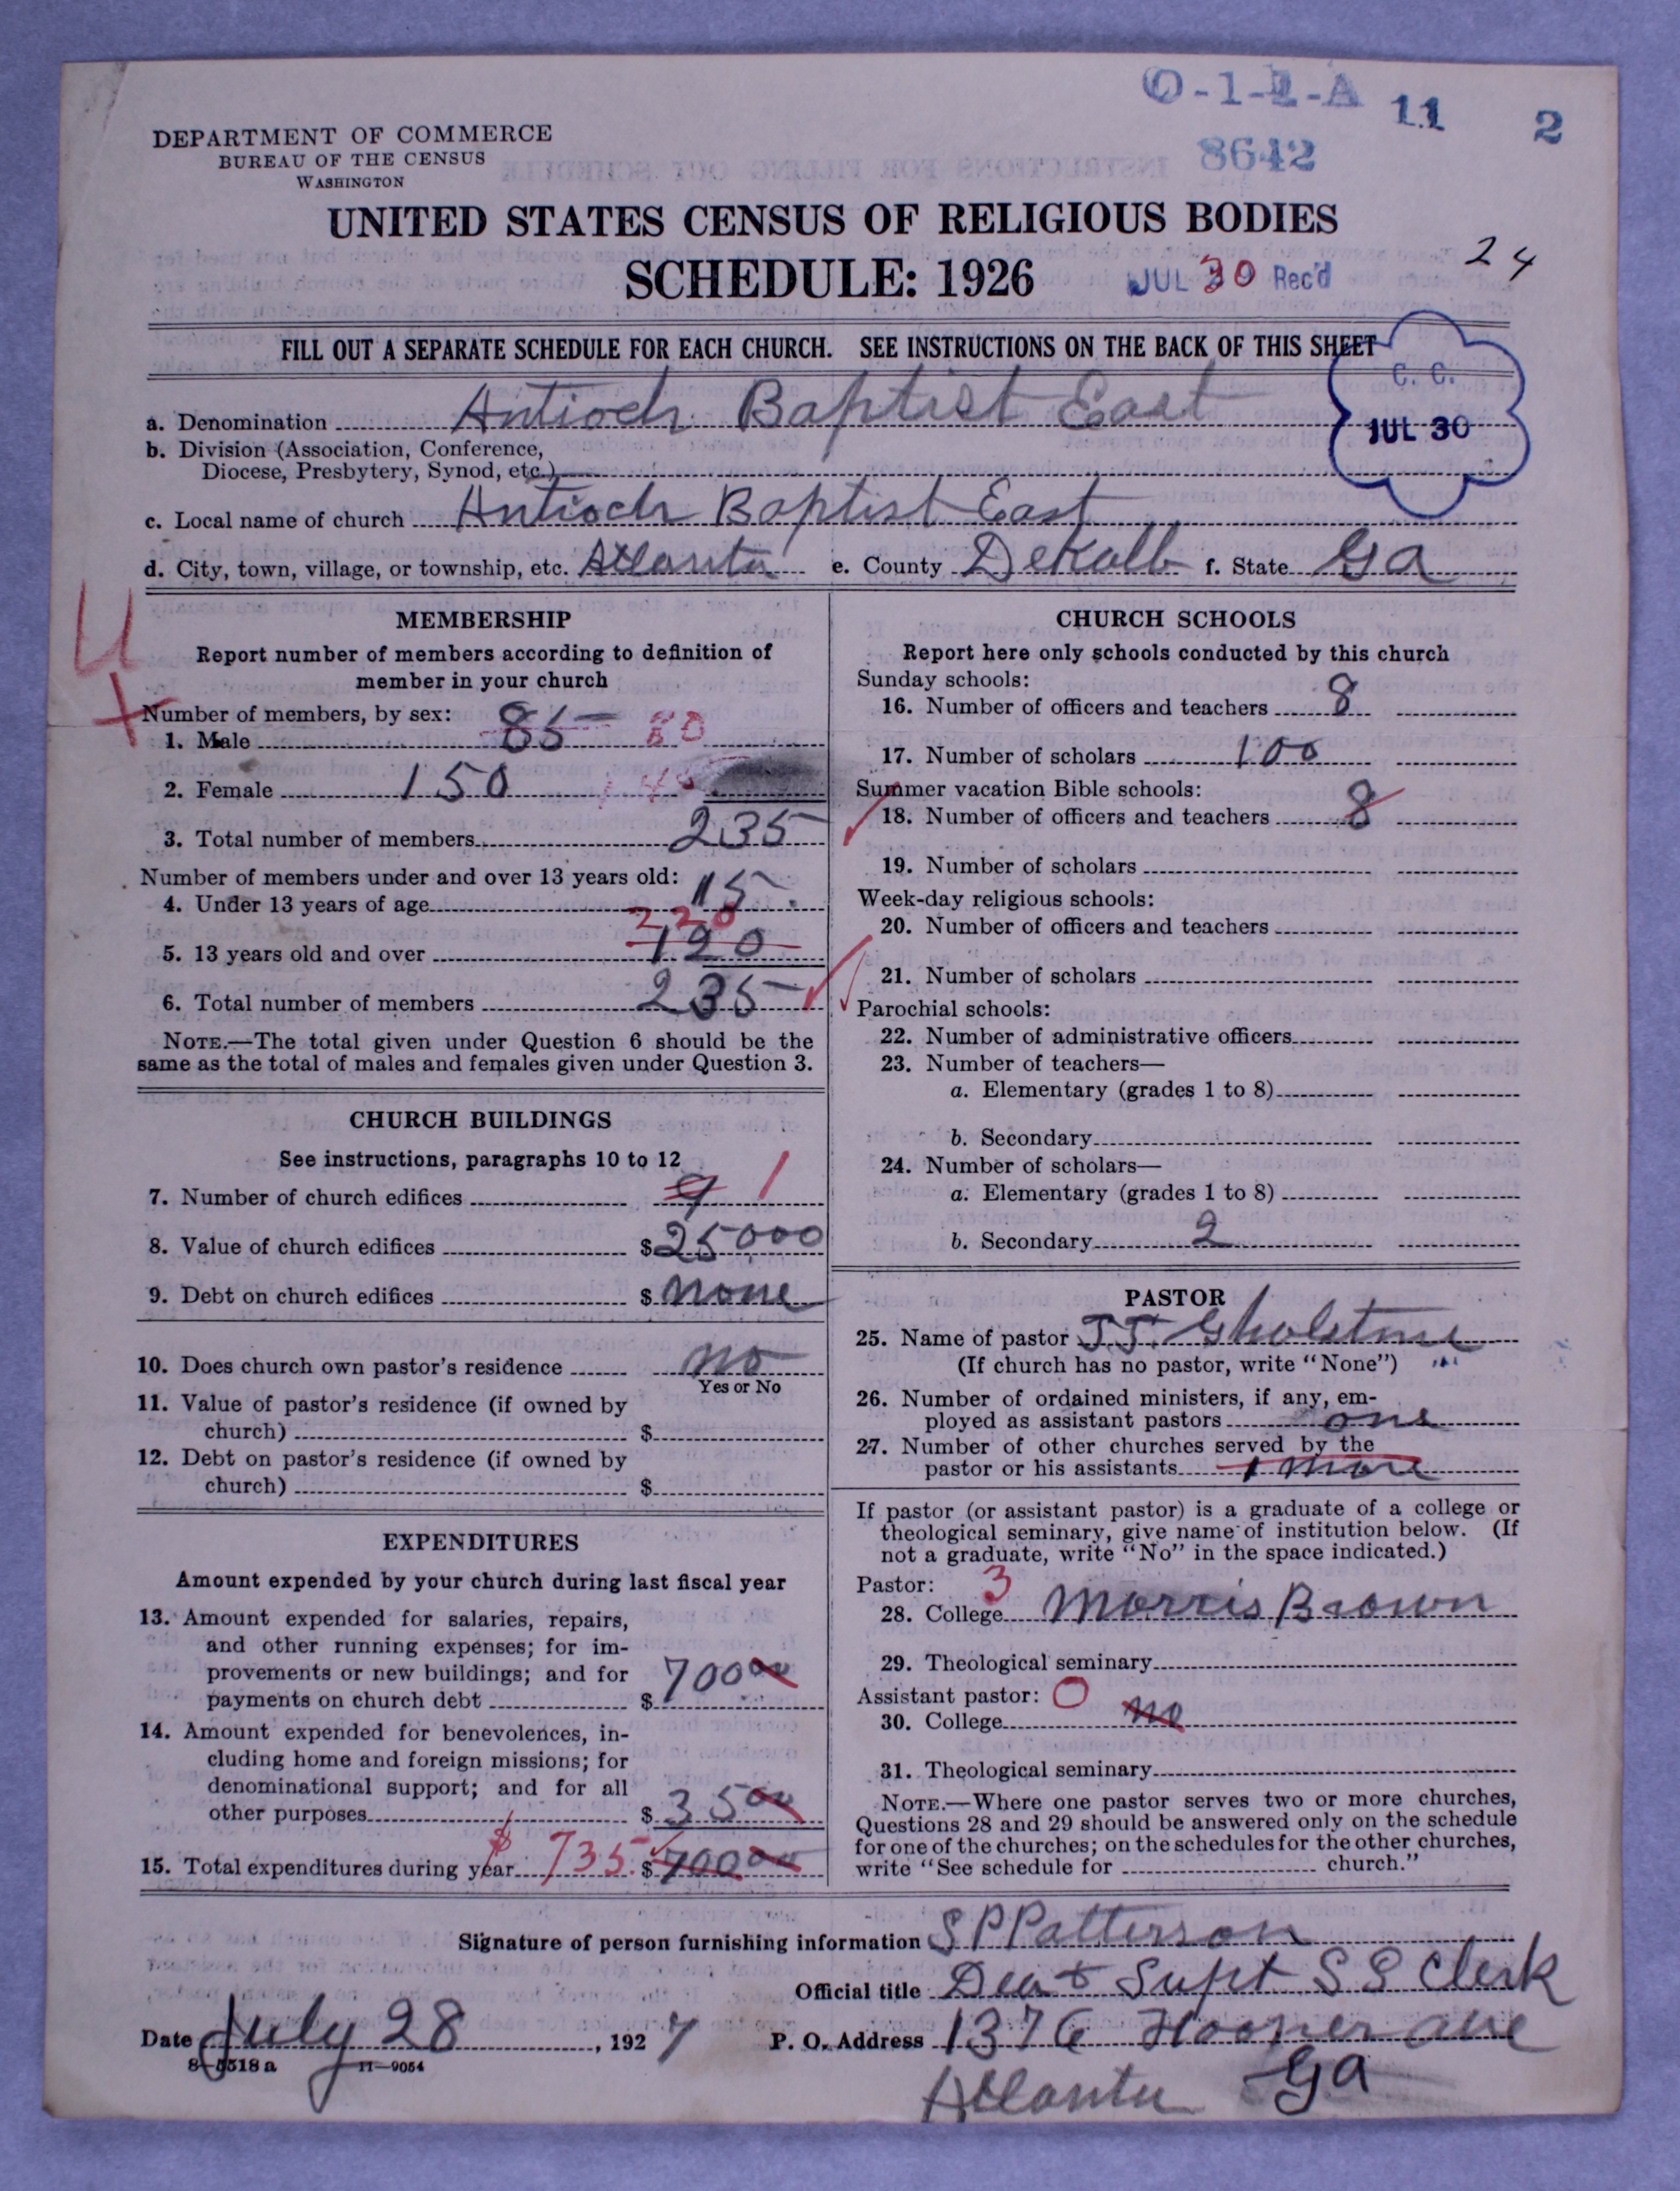 O-1-2-A 11 2
DEPARTMENT OF COMMERCE
BUREAU OF THE CENSUS
WASHINGTON
8642
UNITED STATES CENSUS OF RELIGIOUS BODIES
SCHEDULE: 1926
JUL 30 Rec'd
24
FILL OUT A SEPARATE SCHEDULE FOR EACH CHURCH. SEE INSTRUCTIONS ON THE BACK OF THIS SHEET
C. C.
JUL 30
a. Denomination Antioch Baptist East
b. Division (Association, Conference,
Diocese, Presbytery, Synod, etc.)
c. Local name of church Antioch Baptist East
d. City, town, village, or township, etc. Atlanta e. County DeKalb f. State Ga
4
MEMBERSHIP
Report number of members according to definition of
member in your church
Number of members, by sex:
1. Male 85 80
2. Female 150 145
3. Total number of members 235
Number of members under and over 13 years old:
4. Under 13 years of age 15
220
5. 13 years old and over 120
6. Total number of members 235
NOTE.—The total given under Question 6 should be the
same as the total of males and females given under Question 3.
CHURCH BUILDINGS
See instructions, paragraphs 10 to 12
7. Number of church edifices 9 1
8. Value of church edifices $25000
9. Debt on church edifices $ none
10. Does church own pastor's residence no
Yes or No
11. Value of pastor's residence (if owned by
church) $
12. Debt on pastor's residence (if owned by
church) $
EXPENDITURES
Amount expended by your church during last fiscal year
13. Amount expended for salaries, repairs,
and other running expenses; for im-
provements or new buildings; and for
payments on church debt $ 700 00
14. Amount expended for benevolences, in-
cluding home and foreign missions; for
denominational support; and for all
other purposes $ 35 00
15. Total expenditures during year $ 735. $ 700 00
CHURCH SCHOOLS
Report here only schools conducted by this church
Sunday schools:
16. Number of officers and teachers 8
17. Number of scholars 100
Summer vacation Bible schools:
18. Number of officers and teachers 8
19. Number of scholars
Week-day religious schools:
20. Number of officers and teachers
21. Number of scholars
Parochial schools:
22. Number of administrative officers
23. Number of teachers—
a. Elementary (grades 1 to 8)
b. Secondary
24. Number of scholars—
a. Elementary (grades 1 to 8)
b. Secondary 2
PASTOR
25. Name of pastor J.J. Gholstone
(If church has no pastor, write "None")
26. Number of ordained ministers, if any, em-
ployed as assistant pastors one
27. Number of other churches served by the
pastor or his assistants 1 more
If pastor (or assistant pastor) is a graduate of a college or
theological seminary, give name of institution below. (If
not a graduate, write "No" in the space indicated.)
Pastor: 3
28. College Morris Brown
29. Theological seminary
Assistant pastor: 0
30. College no
31. Theological seminary
NOTE.—Where one pastor serves two or more churches,
Questions 28 and 29 should be answered only on the schedule
for one of the churches; on the schedules for the other churches,
write "See schedule for church."
Signature of person furnishing information S P Patterson
Official title Dea + Supt S S Clerk
Date July 28, 1927 P. O. Address 1376 Hooper ave
8—5518 a 11—9054
Atlanta Ga